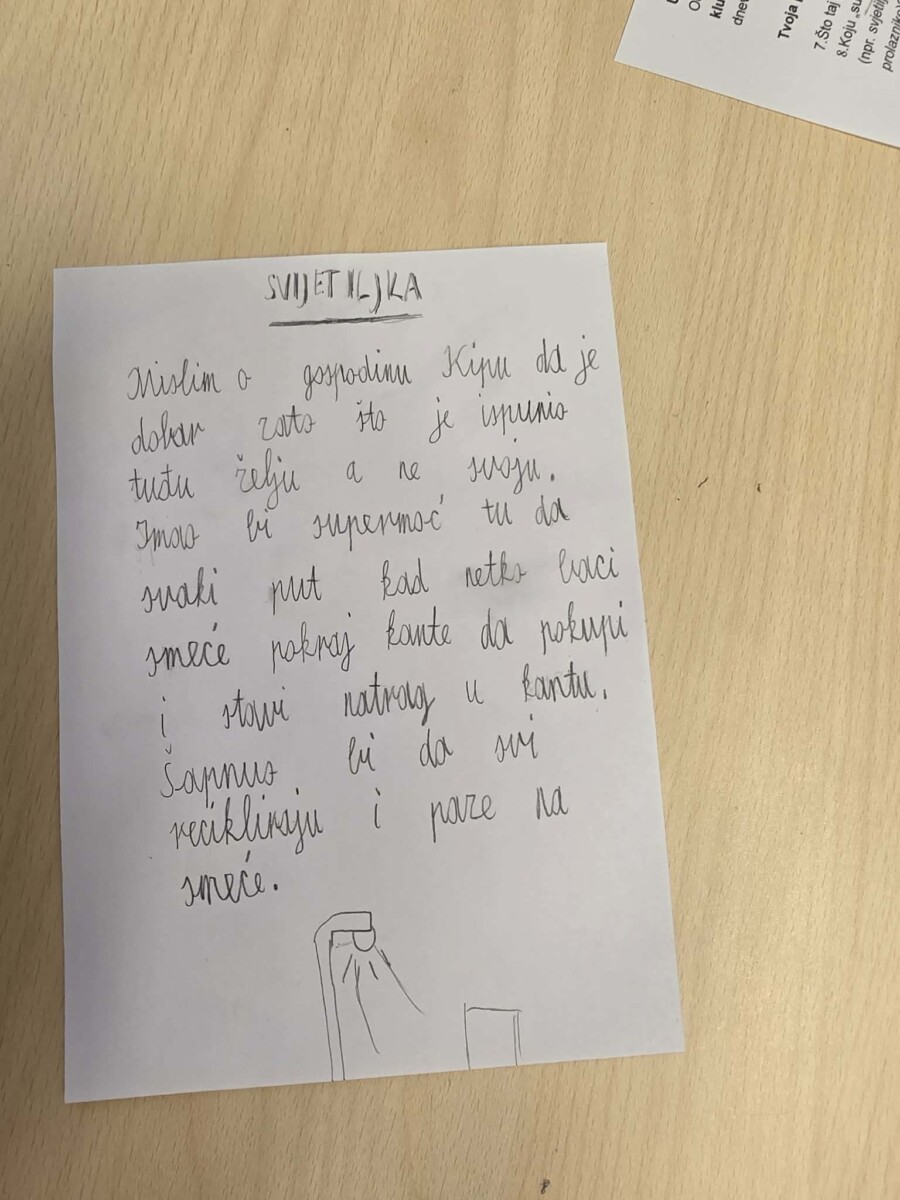 klu
dnev
Tvoja
7.Što taj
8.Koju „su
(npr. svjetilj
prolaznik
SVIJETILJKA
Mislim o gospodinu Kipu da je
dobar zato što je ispunio
tuđu želju a ne svoju.
Imao bi supermoć tu da
svaki put kad netko baci
smeće pokraj kante da pokupi
i stavi natrag u kantu.
Šapnuo bi da svi
recikliraju i paze na
smeće.